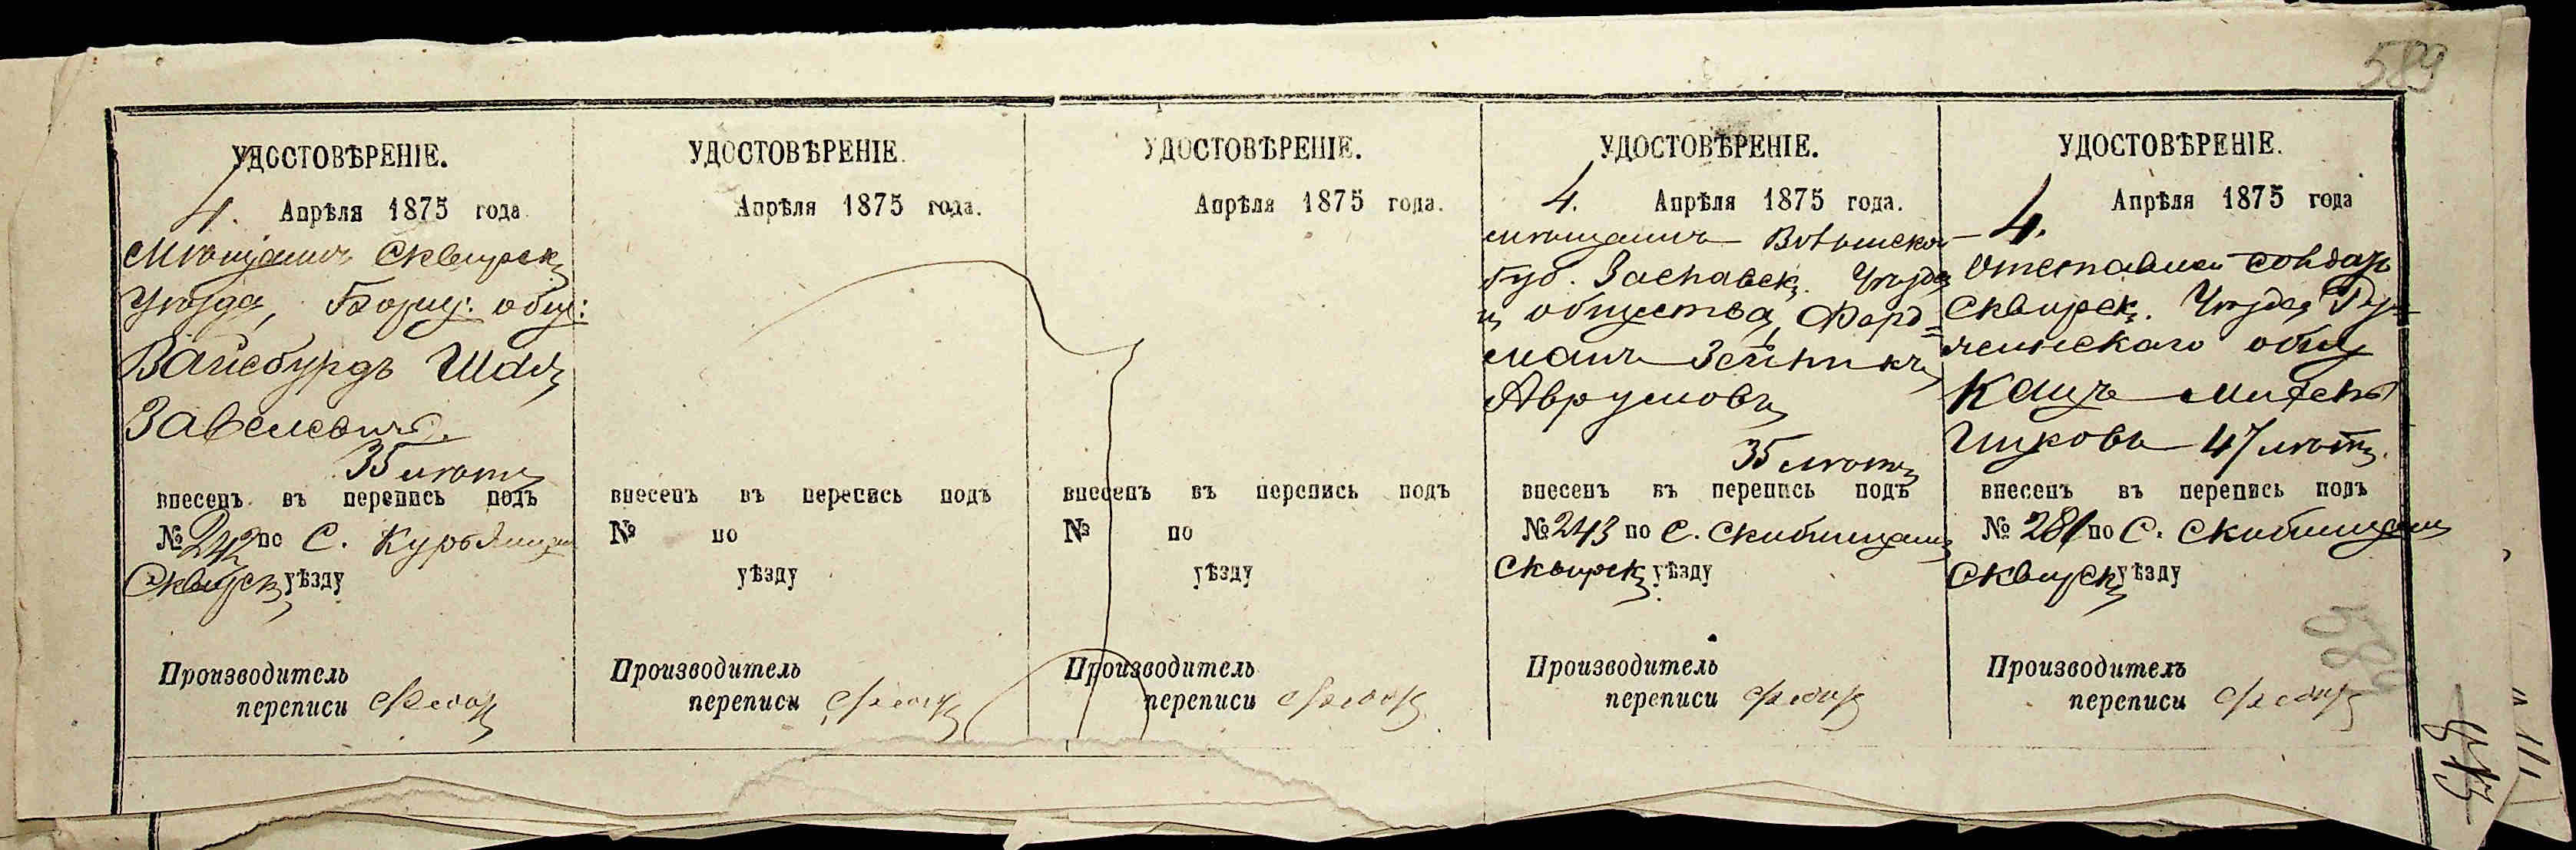 589
УДОСТОВѢРЕНІЕ.
4. Апрѣля 1875 года
Мѣщанинъ Сквирск.
Уѣзда, Борщ: общ:
Вайсбурдъ Шая
Завелевичъ.
35 лѣтъ
внесенъ въ перепись подъ
№ 242 по С. Курьянцы
Сквирск. уѣзду
Производитель
переписи
УДОСТОВѢРЕНІЕ.
Апрѣля 1875 года.
внесенъ въ перепись подъ
№ по
уѣзду
Производитель
переписи
УДОСТОВѢРЕНІЕ.
Апрѣля 1875 года.
внесенъ въ перепись подъ
№ по
уѣзду
Производитель
переписи
УДОСТОВѢРЕНІЕ.
4. Апрѣля 1875 года.
мѣщанинъ Волынской
Губ. Заславск. Уѣзда
и общества, Фард=
манъ
Аврумовъ
35 лѣтъ
внесенъ въ перепись подъ
№ 243 по С. Скибинцамъ
Сквирск. уѣзду
Производитель
переписи
УДОСТОВѢРЕНІЕ.
4. Апрѣля 1875 года
Отставной солдатъ
Сквирск. Уѣзда
общ.
Кацъ
Ицковъ 47 лѣтъ.
внесенъ въ перепись подъ
№ 281 по С. Скибинцамъ
Сквирск. уѣзду
Производитель
переписи